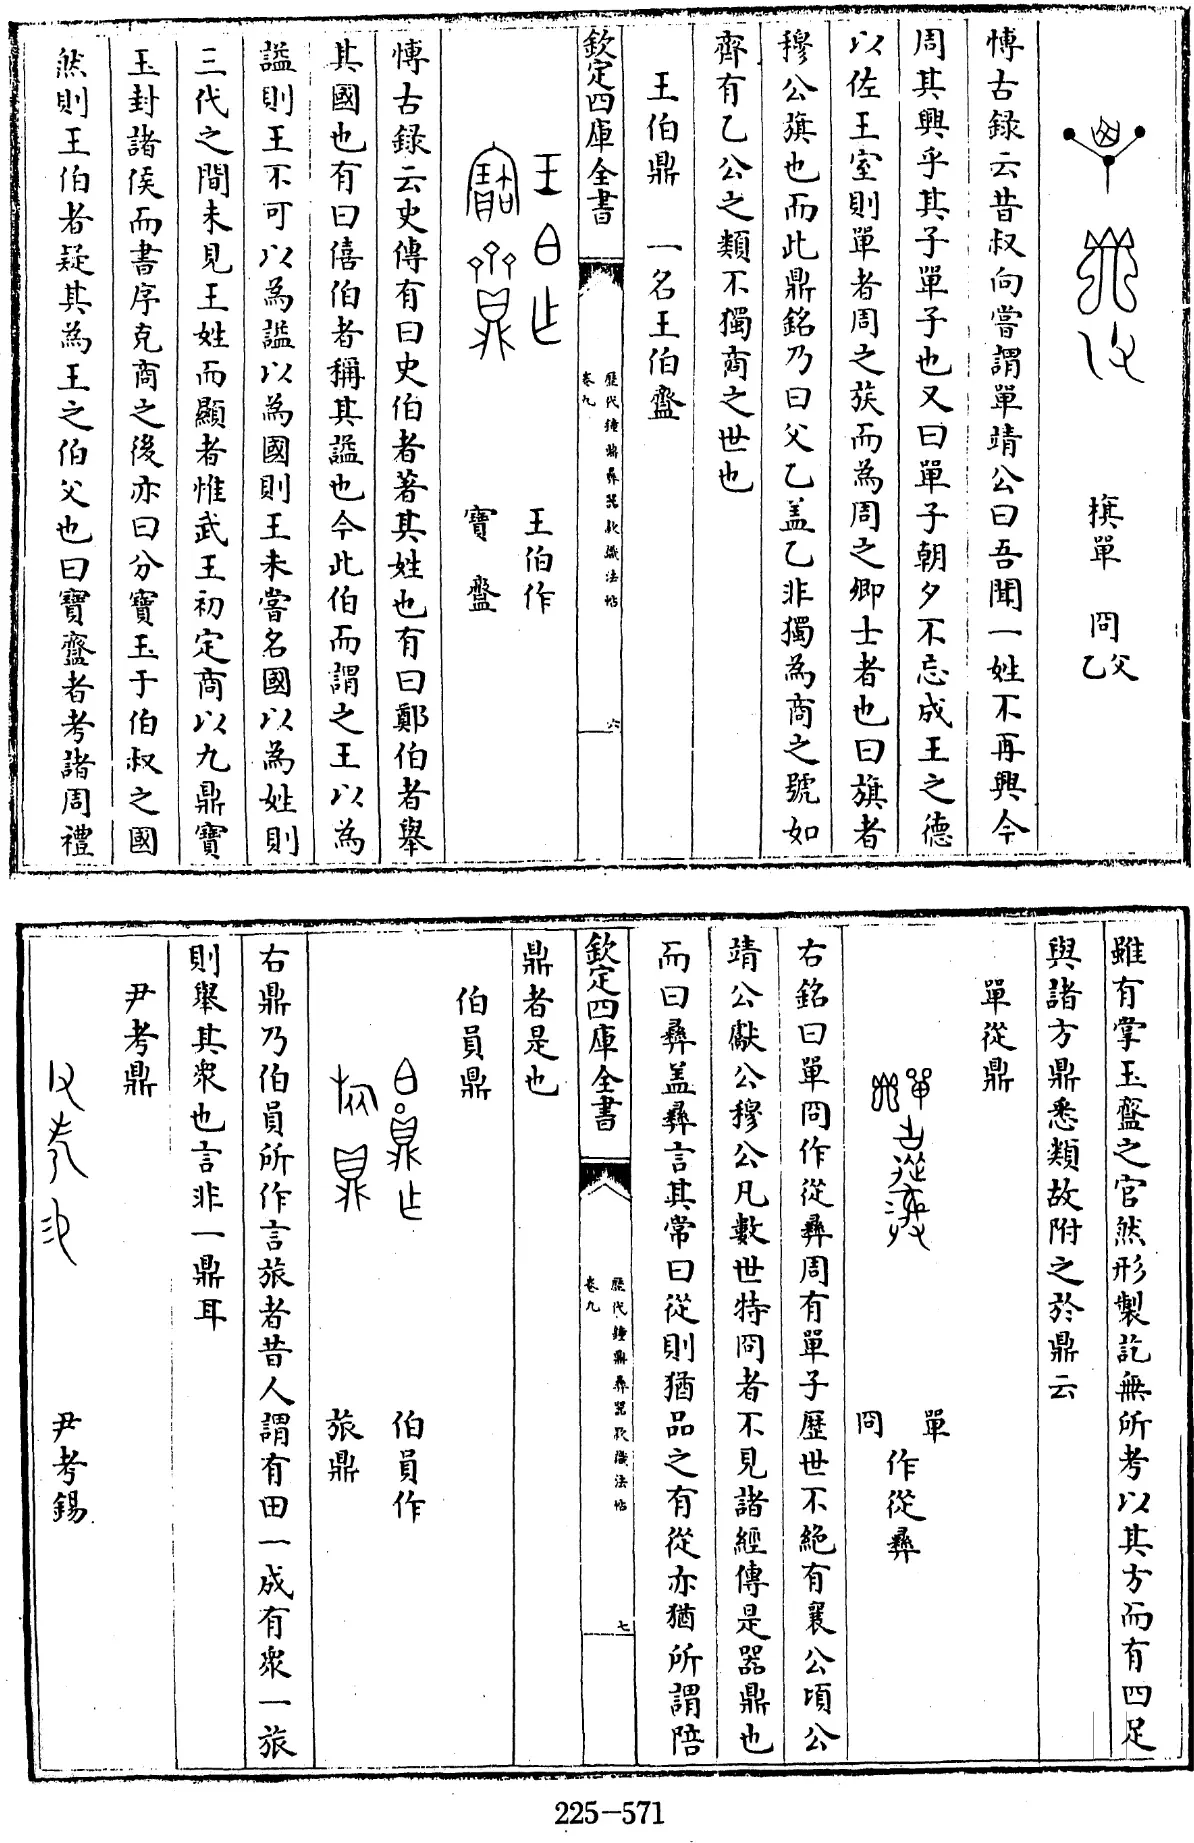 單
冏
父乙
博古録云昔叔向嘗謂單靖公曰吾聞一姓不再興今
周其興乎其子單子也又曰單子朝夕不忘成王之德
以佐王室則單者周之族而為周之卿士者也曰旗者
穆公旗也而此鼎銘乃曰父乙盖乙非獨為商之號如
齊有乙公之類不獨商之世也
王伯鼎 一名王伯齍
欽定四庫全書
歷代鐘鼎彝器款識法帖
卷九
六
王伯作
寶齍
博古録云史傳有曰史伯者著其姓也有曰鄭伯者舉
其國也有曰僖伯者稱其諡也今此伯而謂之王以為
諡則王不可以為諡以為國則王未嘗名國以為姓則
三代之間未見王姓而顯者惟武王初定商以九鼎寶
玉封諸侯而書序克商之後亦曰分寶玉于伯叔之國
然則王伯者疑其為王之伯父也曰寶齍者考諸周禮
雖有掌玉齍之官然形製訖無所考以其方而有四足
與諸方鼎悉類故附之於鼎云
單從鼎
單
冏
作從彝
右銘曰單冏作從彝周有單子歷世不絶有襄公頃公
靖公獻公穆公凡數世特冏者不見諸經傳是器鼎也
而曰彝盖彝言其常曰從則猶品之有從亦猶所謂陪
欽定四庫全書
歷代鐘鼎彝器款識法帖
卷九
七
鼎者是也
伯員鼎
伯員作
旅鼎
右鼎乃伯員所作言旅者昔人謂有田一成有衆一旅
則舉其衆也言非一鼎耳
尹考鼎
尹考錫
225-571